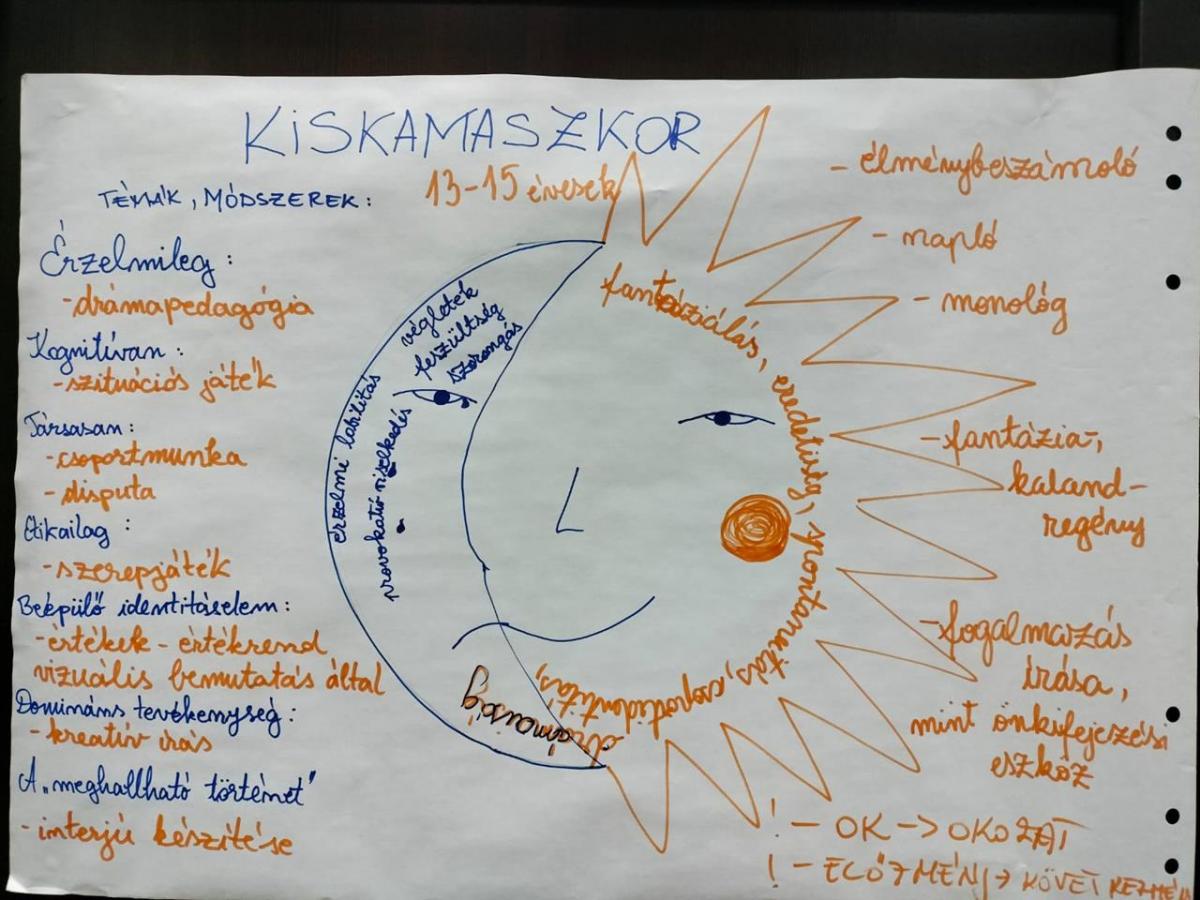 KiSKAMASZKOR
13-15 évesek
TÉMÁK, MÓDSZEREK:
Érzelmileg:
- drámapedagógia
Kognitívan:
- szituációs játék
Társasan:
- csoportmunka
- disputa
Etikailag:
- szerepjáték
Beépülő identitáselem:
- értékek - értékrend
vizuális bemutatás által
Domináns tevékenység:
- kreatív írás
A „meghallható történet"
- interjú készítése
végletek
feszültség
szorongás
érzelmi labilitás
provokatív viselkedés
fantáziálás, eredetiség, spontaneitás, csoportidentitás,
drámaiság
- élménybeszámoló
- napló
- monológ
- fantázia-,
kaland-
regény
- fogalmazás
írása,
mint önkifejezési
eszköz
! - OK -> OKOZAT
! - ELŐZMÉNY -> KÖVETKEZMÉNY